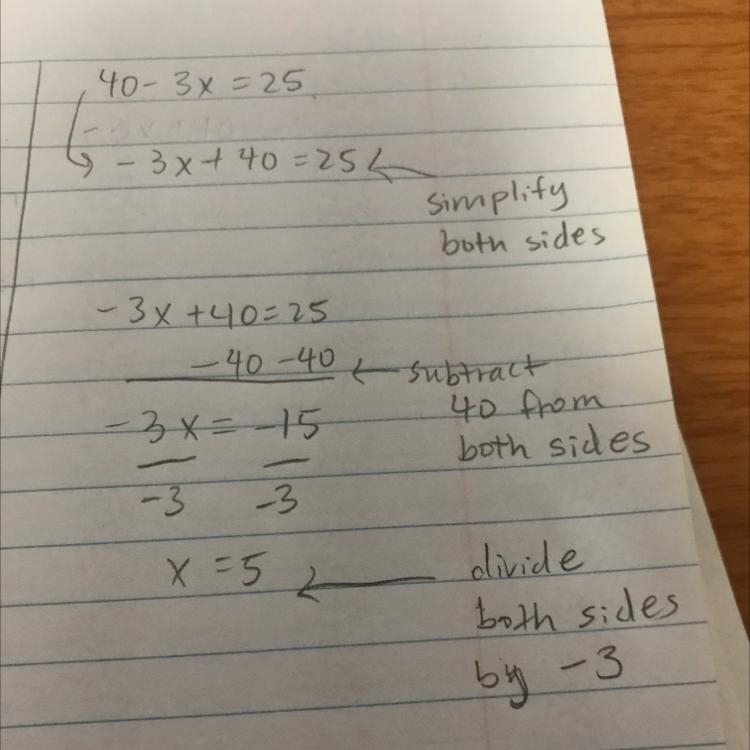 40 - 3x = 25
- 3x + 40
- 3x + 40 = 25
simplify
both sides
- 3x + 40 = 25
- 40 - 40
subtract
40 from
both sides
- 3x = -15
-3 -3
x = 5
divide
both sides
by -3